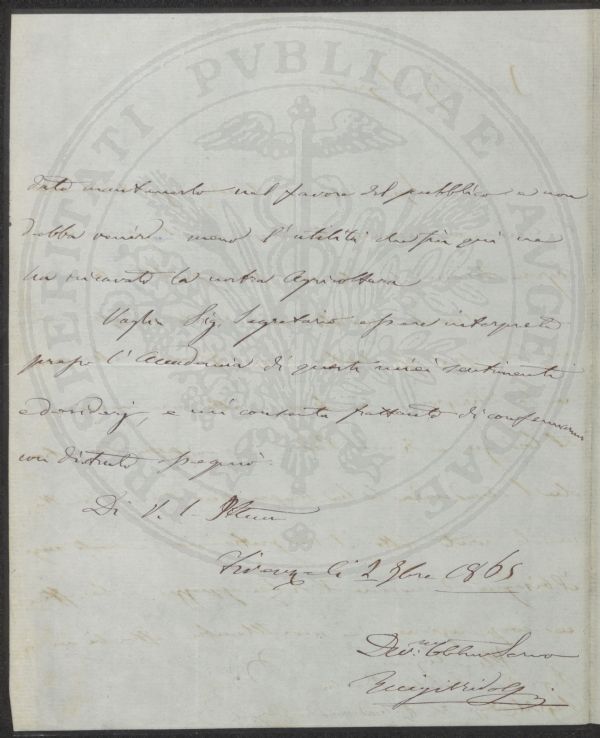 PROSPERITATI PVBLICAE AVGENDAE
dato mantenerlo nel favore del pubblico e non
debba venir meno l'utilità che fin qui ne
ha ricavato la nostra Agricoltura
Voglia Sig. Segretario essere interprete
presso l'Accademia di questi miei sentimenti
e desiderj, e mi consenta frattanto di confermarmi
con distinto ossequio
Di V. S. Illma
Firenze li 2 9bre 1865
Dev.mo Obblmo Servo
Luigi Ridolfi